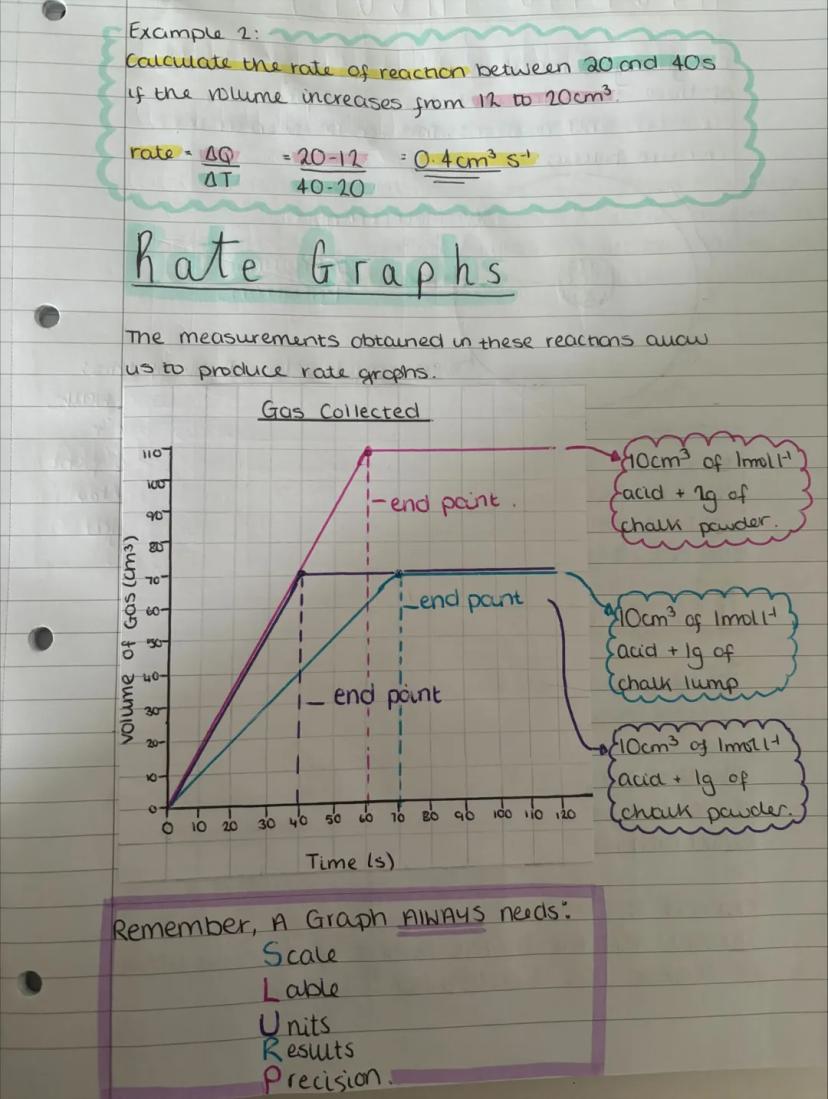 Example 2:
Calculate the rate of reaction between 20 and 40s
if the volume increases from 12 to 20cm³.
rate = ΔQ = 20-12 = 0.4cm³ s⁻¹
ΔT 40-20
Rate Graphs
The measurements obtained in these reactions allow
us to produce rate graphs.
Gas Collected
Volume of Gas (cm³)
110
100
90
80
70
60
50
40
30
20
10
0
0 10 20 30 40 50 60 70 80 90 100 110 120
Time (s)
- end point.
- end point
- end point
10cm³ of 1mol l⁻¹
acid + 2g of
chalk powder.
10cm³ of 1mol l⁻¹
acid + 1g of
chalk lump
10cm³ of 1mol l⁻¹
acid + 1g of
chalk powder.
Remember, A Graph AlWAYS needs:
Scale
Lable
Units
Results
Precision.